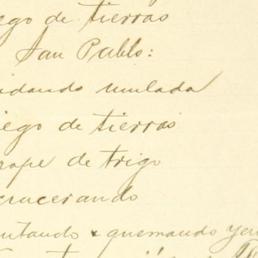 ego de tierras
San Pablo:
idando mulada
iego de tierras
rape de trigo
crucerando
ntando & quemando yer